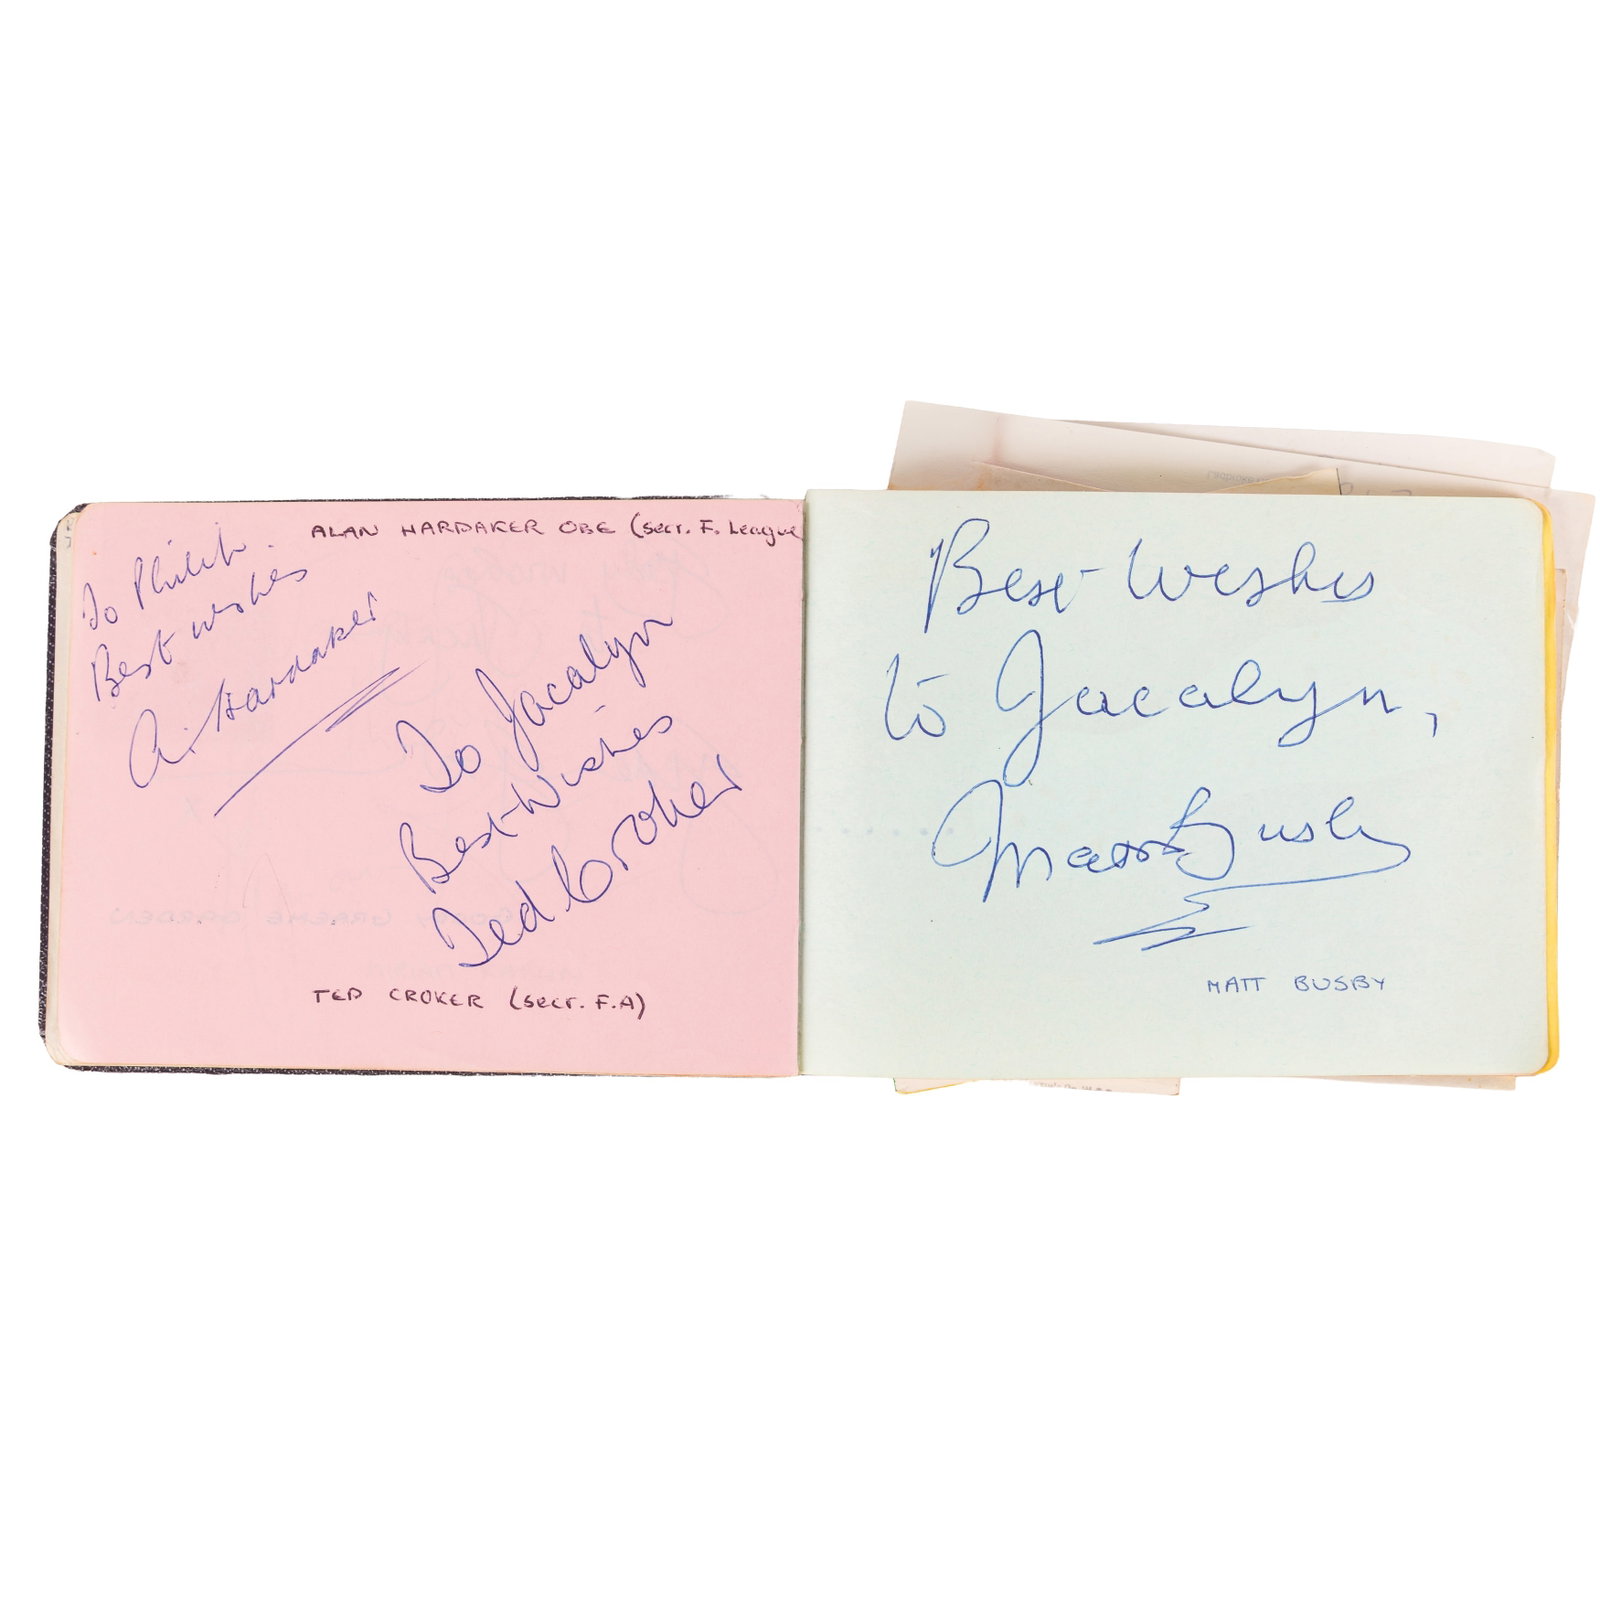 ALAN HARDAKER OBE (secr. F. League
To Philip.
Best wishes
A. Hardaker
To Jacalyn
Best-Wishes
Ted Croker
TED CROKER (secr. F.A)
Best Wishes
to Jacalyn,
Matt Busby
MATT BUSBY